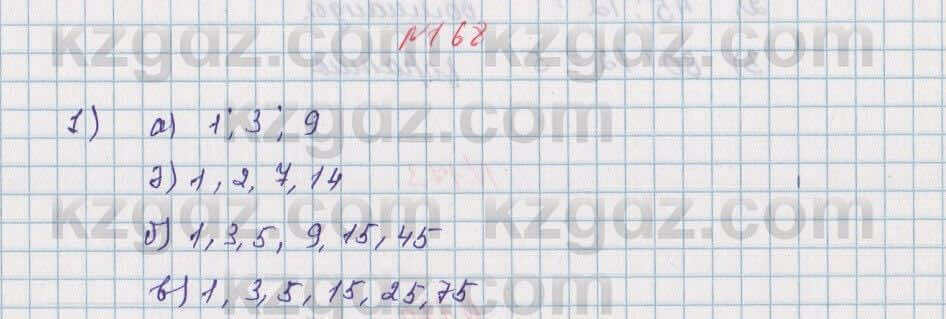 №168
1) а) 1; 3; 9
ә) 1, 2, 7, 14
б) 1, 3, 5, 9, 15, 45
в) 1, 3, 5, 15, 25, 75
kzgdz.com kzgdz.com
kzgdz.com
kzgdz.com kzgdz.com
kzgdz.com